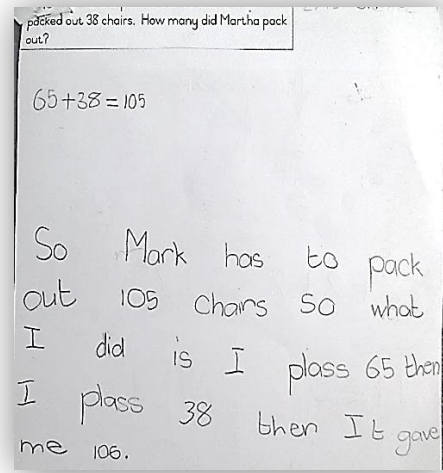 packed out 38 chairs. How many did Martha pack
out?
65+38=105
So Mark has to pack
out 105 chairs so what
I did is I plass 65 then
I plass 38 then It gave
me 106.